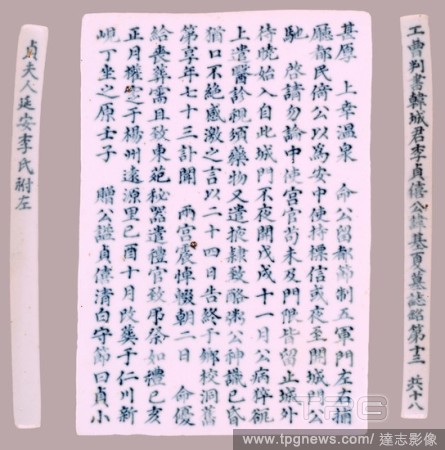 工曹判書韓城君李貞僖公諱基夏墓誌銘 第十三 共十八
甚厚 上幸溫泉 命公留都節制五軍門左右捕
廳都民倚公以爲安中使持標信或夜至開城門公
馳 啓請勿論中使宮官苟未及門限皆留止城外
待曉始入自此城門不夜開戊戌十一月公病
上遣醫診視須藥物又遣掖隸致酪粥公神識已昏
猶口不絶感激之言以二十四日告終于鄕校洞舊
第享年七十三訃聞 兩宮震悼輟朝二日 命優
給喪葬需且致東苑秘器遣禮官致吊祭如禮己亥
正月權窆于楊州遠源里己酉十月改葬于仁川新
峴丁坐之原壬子 贈公諡貞僖清白守節曰貞小
貞夫人延安李氏祔左
TPG
www.tpgnews.com / 達志影像